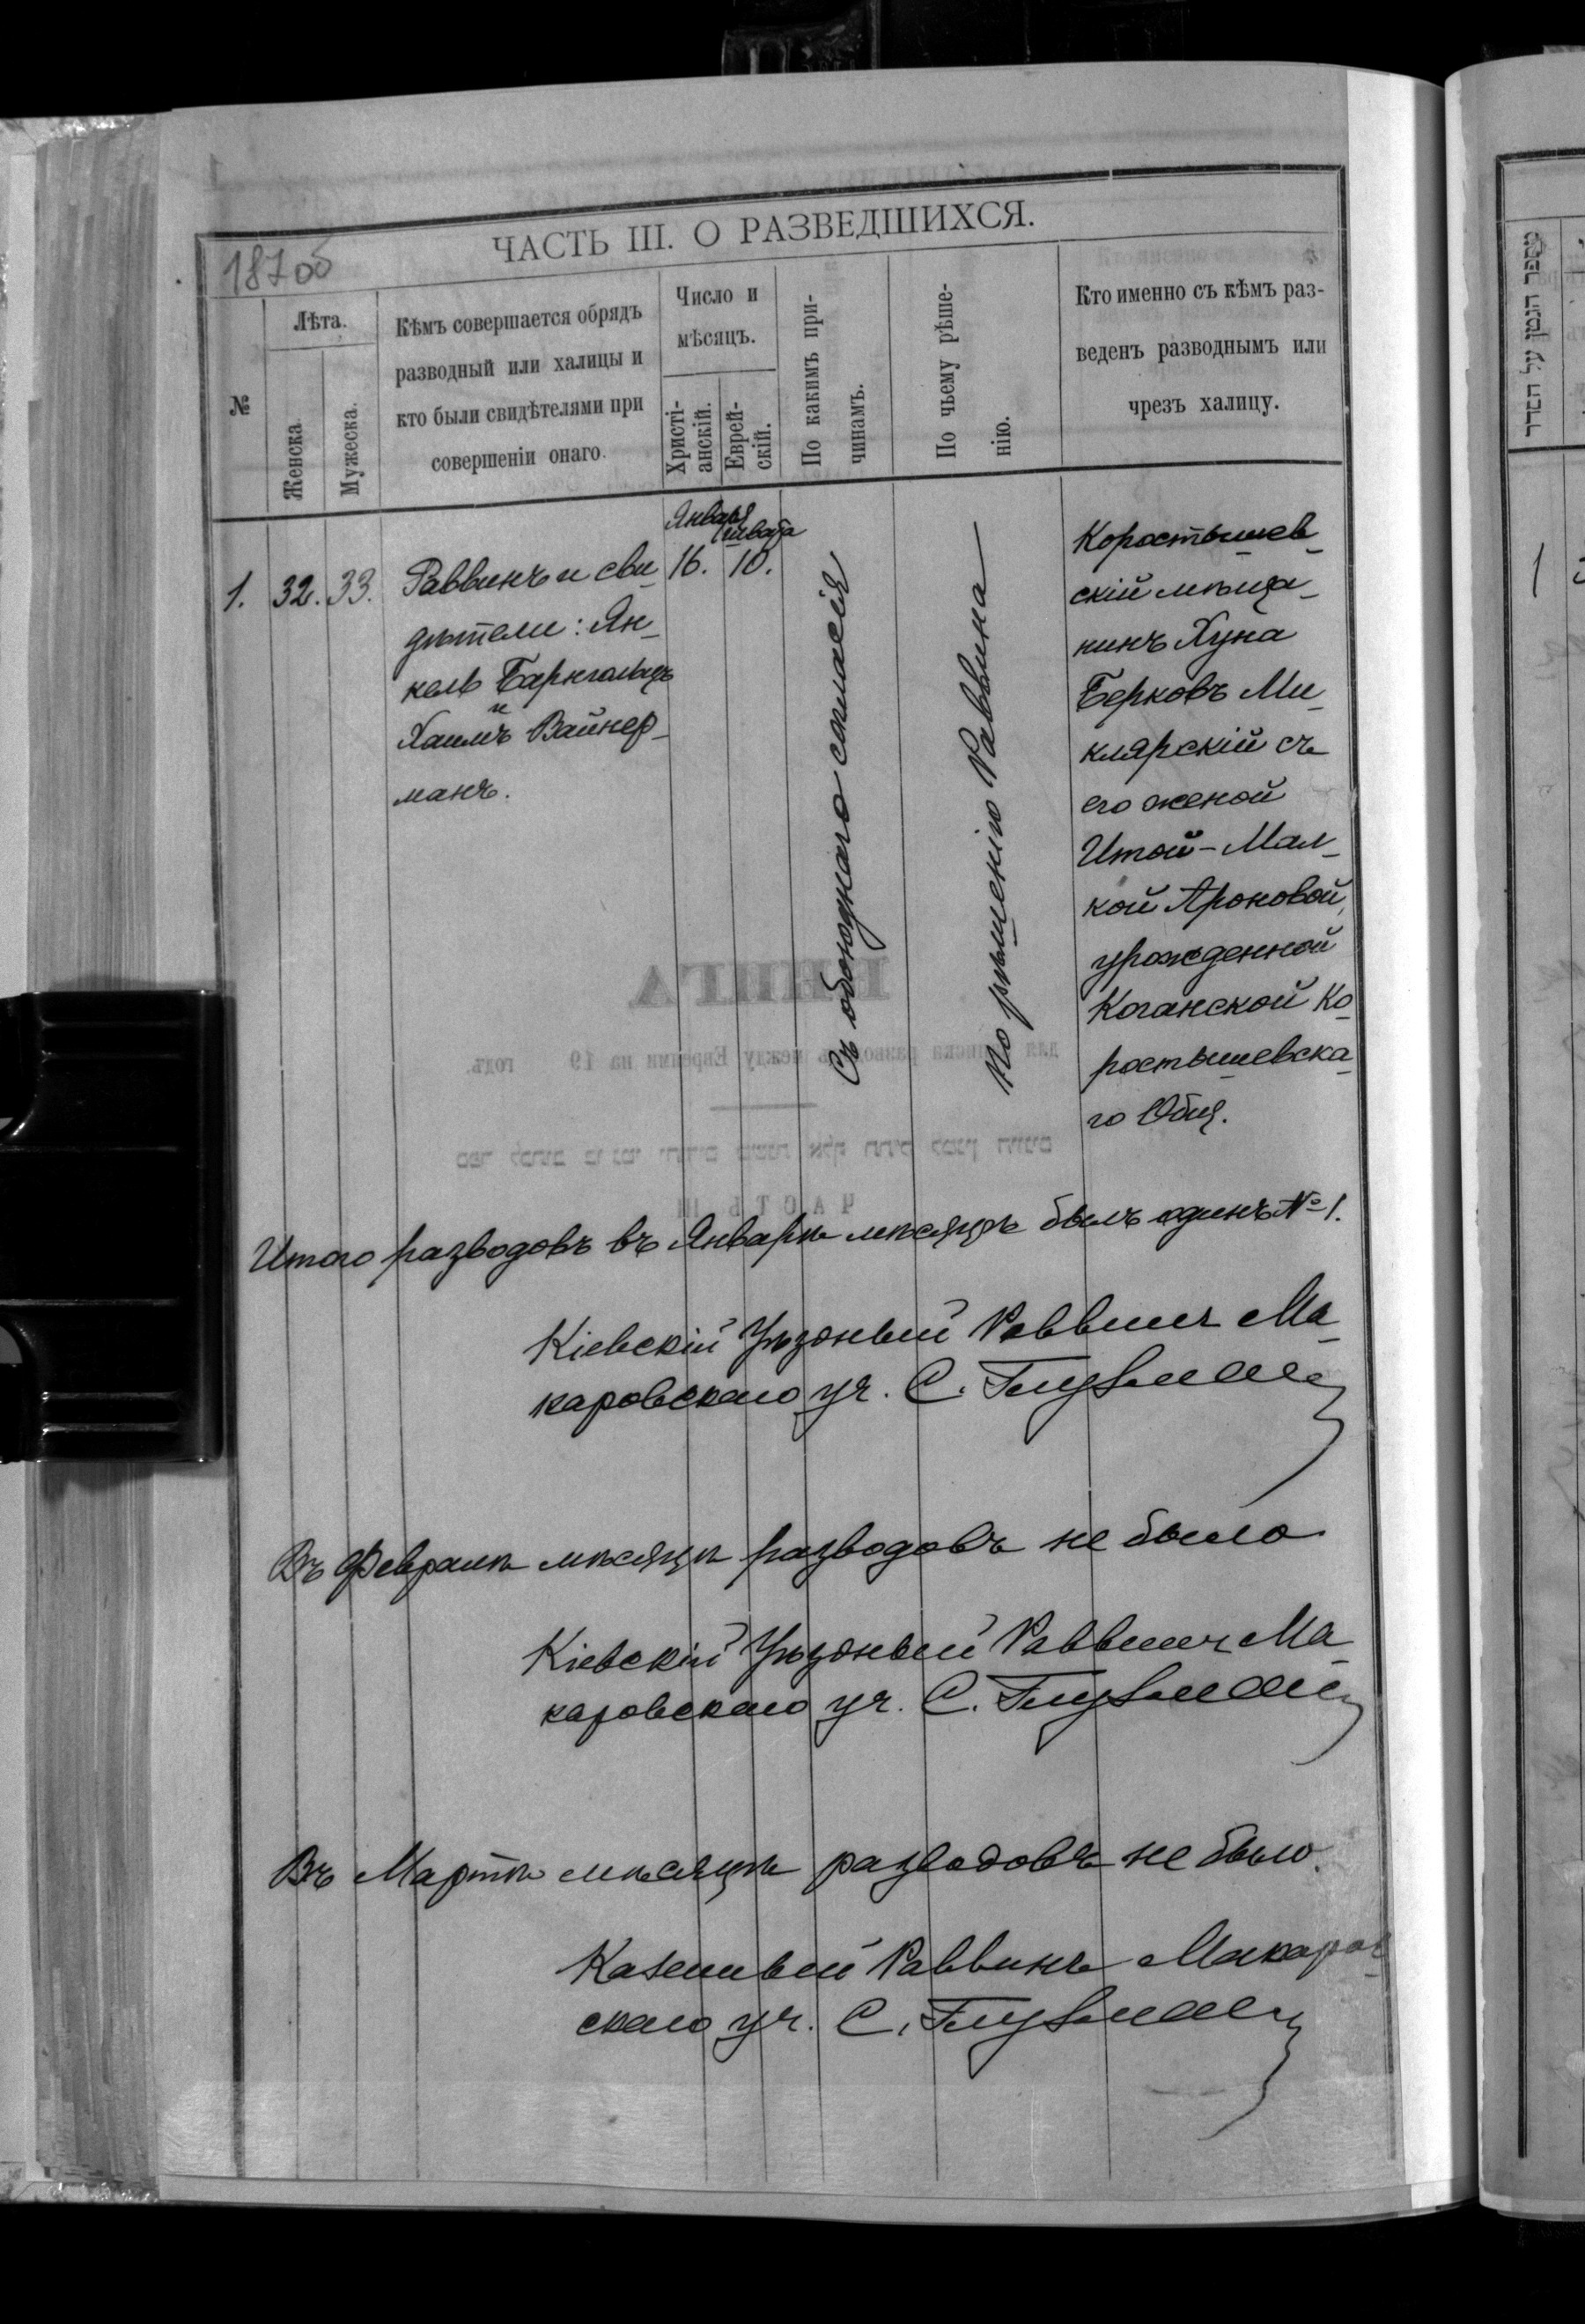 187 об
ЧАСТЬ III. О РАЗВЕДШИХСЯ.
№
Лѣта.
Женска.
Мужеска.
Кѣмъ совершается обрядъ
разводный или халицы и
кто были свидѣтелями при
совершеніи онаго.
Число и
мѣсяцъ.
Христі-
анскій.
Еврей-
скій.
По какимъ при-
чинамъ.
По чьему рѣше-
нію.
Кто именно съ кѣмъ раз-
веденъ разводнымъ или
чрезъ халицу.
1.
32.
33.
Раввинъ и сви-
дѣтели: Ян-
кель Барнгольцъ
и
Хаимъ Вайнер-
манъ.
Января
16.
Швата
10.
Съ обоюднаго согласія
По рѣшенію Раввина
Коростышев-
скій мѣща-
нинъ Хуна
Берковъ Ми-
клярскій съ
его женой
Итой-Мал-
кой Ароновой,
урожденной
Коганской Ко-
ростышевска-
го Общ.
Итого разводовъ въ Январѣ мѣсяцѣ былъ одинъ № 1.
Кіевскій Уѣздный Раввинъ Ма-
каровскаго уч. С.
Въ Февралѣ мѣсяцѣ разводовъ не было
Кіевскій Уѣздный Раввинъ Ма-
каровскаго уч. С.
Въ Мартѣ мѣсяцѣ разводовъ не было.
Казенный Раввинъ Макаров-
скаго уч. С.
КНИГА
для записки разводовъ между Евреями на 19 годъ.
ЧАСТЬ III
מספר הגטין על הסדר
1